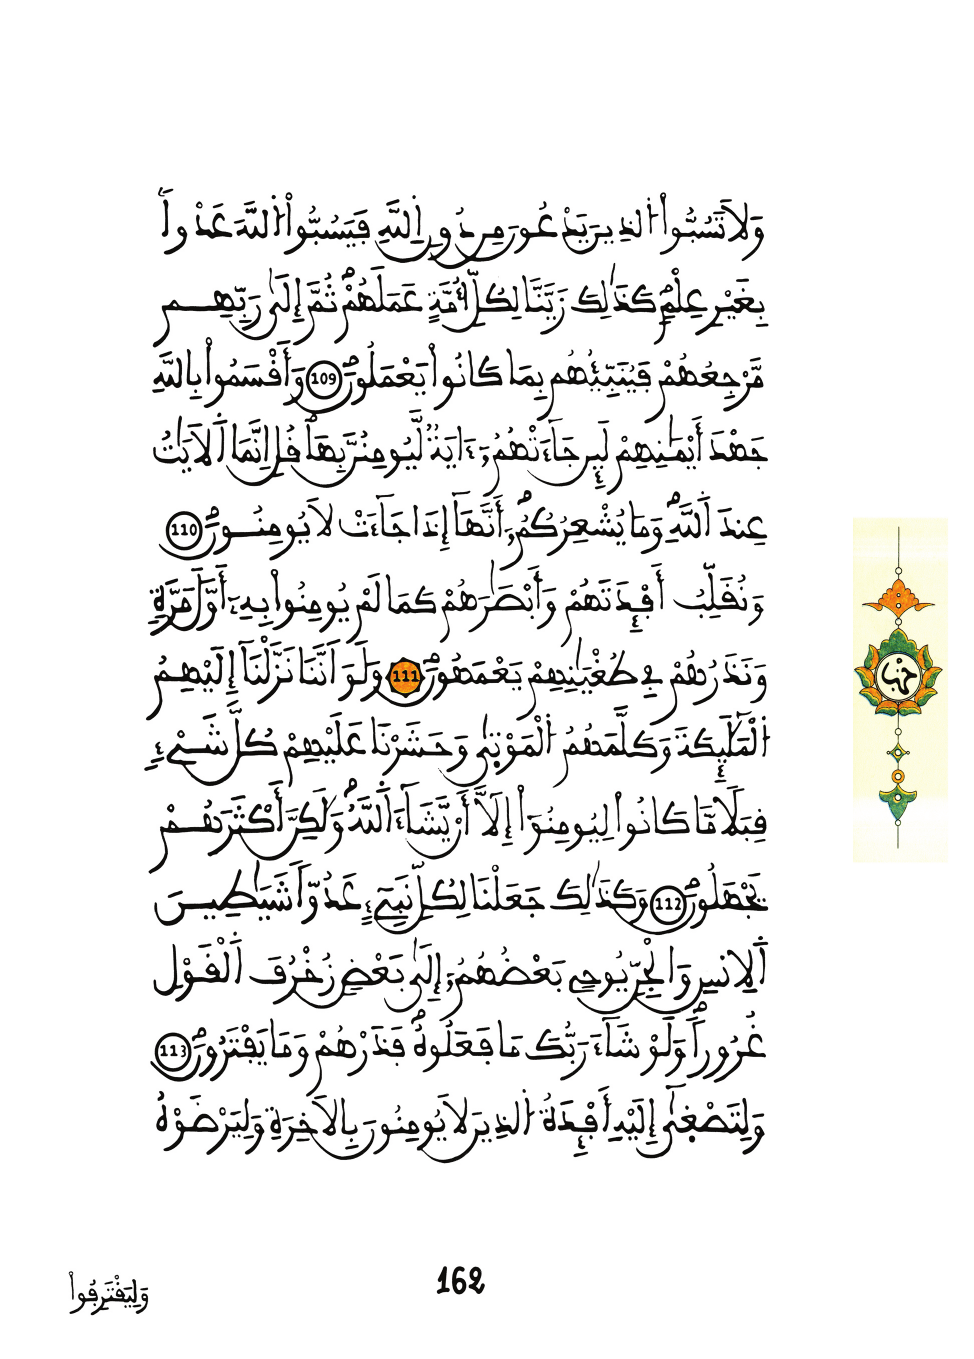 وَلَا تَسُبُّواْ اُلذِينَ يَدْعُونَ مِن دُونِ اِللَّهِ فَيَسُبُّواْ اُللَّهَ عَدْواَۢ
بِغَيْرِ عِلْمٖ كَذَٰلِكَ زَيَّنَّا لِكُلِّ أُمَّةٍ عَمَلَهُمْ ثُمَّ إِلَىٰ رَبِّهِم
مَّرْجِعُهُمْ فَيُنَبِّئُهُم بِمَا كَانُواْ يَعْمَلُونَ 109 وَأَقْسَمُواْ بِاللَّهِ
جَهْدَ أَيْمَٰنِهِمْ لَئِن جَآءَتْهُمُۥٓ ءَايَةٞ لَّيُومِنُنَّ بِهَا قُلِ اِنَّمَا اَلَايَٰتُ
عِندَ اَللَّهِ وَمَا يُشْعِرُكُمُۥٓ أَنَّهَآ إِذَا جَآءَتْ لَا يُومِنُونَ 110
وَنُقَلِّبُ أَفْـِٔدَتَهُمْ وَأَبْصَٰرَهُمْ كَمَا لَمْ يُومِنُواْ بِهِۦٓ أَوَّلَ مَرَّةٖ
وَنَذَرُهُمْ فِي طُغْيَٰنِهِمْ يَعْمَهُونَ 111 وَلَوَ اَنَّنَا نَزَّلْنَآ إِلَيْهِمُ
اُلْمَلَٰٓئِكَةَ وَكَلَّمَهُمُ اُلْمَوْتَىٰ وَحَشَرْنَا عَلَيْهِمْ كُلَّ شَيْءٖ
قِبَلٗا مَّا كَانُواْ لِيُومِنُوٓاْ إِلَّآ أَنْ يَّشَآءَ اَللَّهُ وَلَٰكِنَّ أَكْثَرَهُمْ
يَجْهَلُونَ 112 وَكَذَٰلِكَ جَعَلْنَا لِكُلِّ نَبِيٓءٍ عَدُوّاٗ شَيَٰطِينَ
اَلِانسِ وَالْجِنِّ يُوحِي بَعْضُهُمُۥٓ إِلَىٰ بَعْضٖ زُخْرُفَ اَلْقَوْلِ
غُرُوراٗ وَلَوْ شَآءَ رَبُّكَ مَا فَعَلُوهُ فَذَرْهُمْ وَمَا يَفْتَرُونَ 113
وَلِتَصْغَىٰٓ إِلَيْهِ أَفْـِٔدَةُ اُلذِينَ لَا يُومِنُونَ بِالَاخِرَةِ وَلِيَرْضَوْهُ
حزب
162
وَلِيَقْتَرِفُواْ